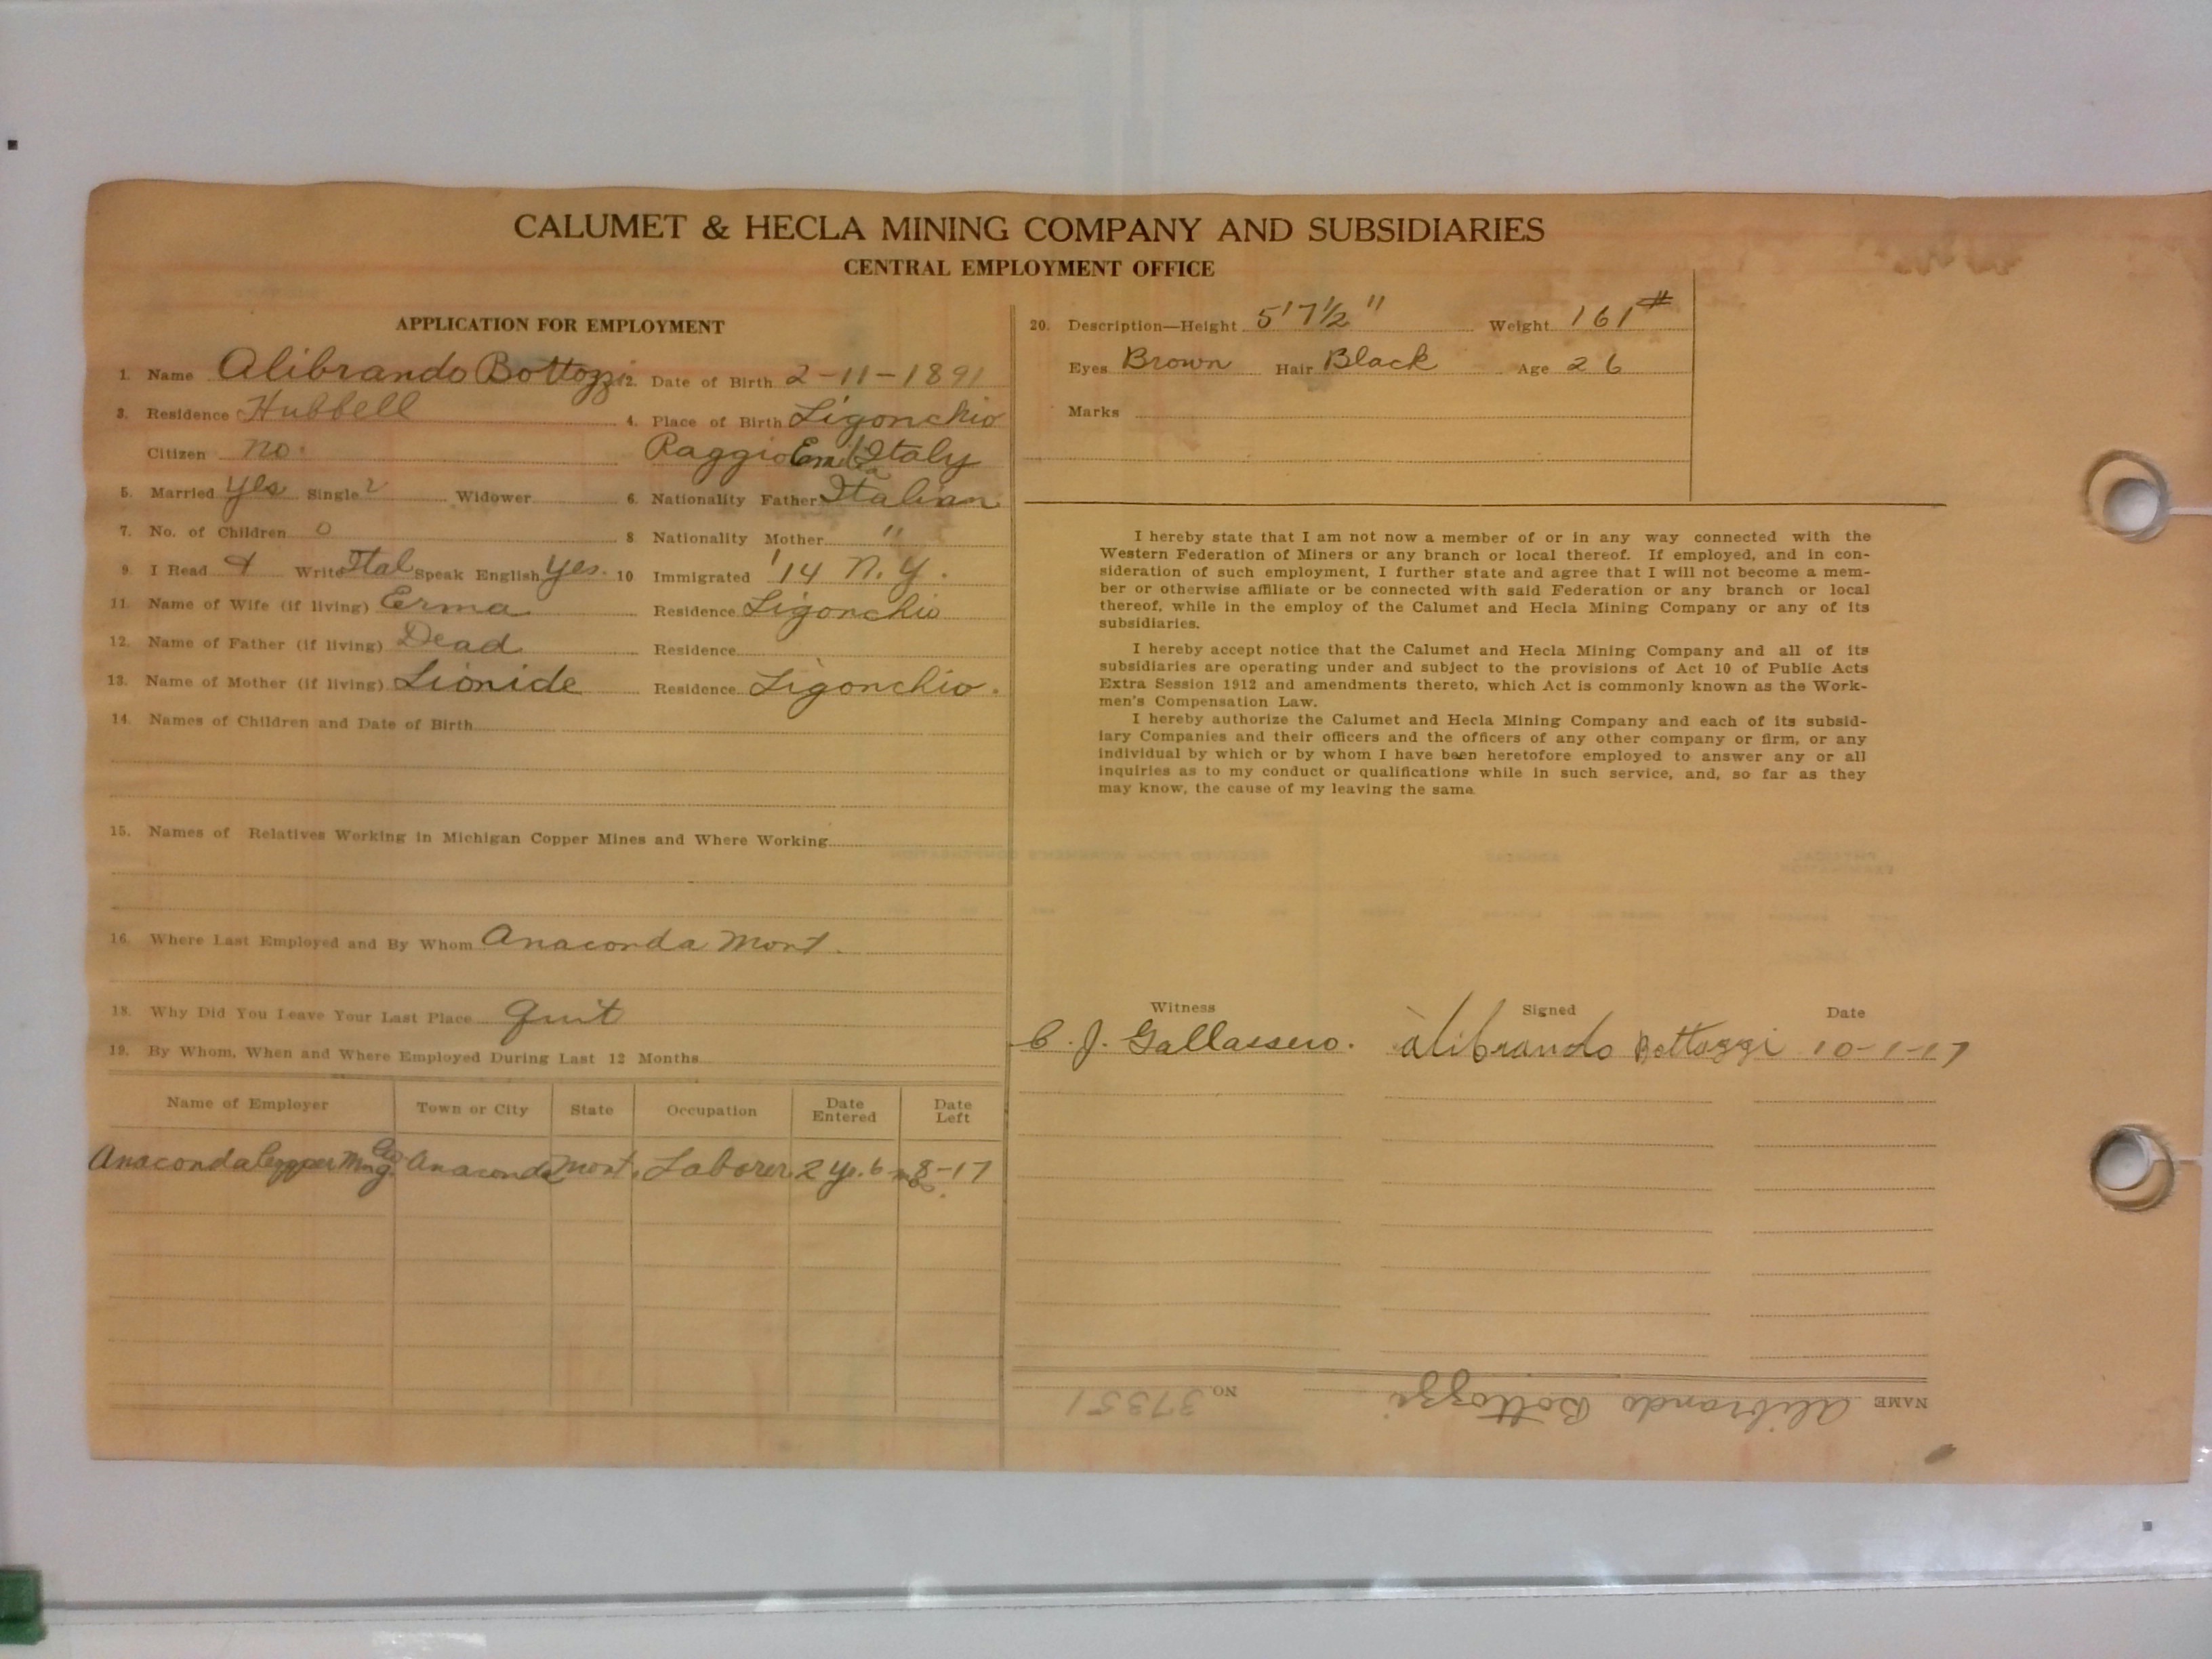 CALUMET & HECLA MINING COMPANY AND SUBSIDIARIES
CENTRAL EMPLOYMENT OFFICE
APPLICATION FOR EMPLOYMENT
1. Name Alibrando Bottozzi 2. Date of Birth 2-11-1891
3. Residence Hubbell 4. Place of Birth Ligonchio
Citizen no. Raggio Emilia Italy
5. Married yes Single Widower 6. Nationality Father Italian
7. No. of Children 0 8 Nationality Mother "
9. I Read & Write Ital Speak English yes. 10 Immigrated '14 N.Y.
11. Name of Wife (if living) Erma Residence Ligonchio
12. Name of Father (if living) Dead Residence
13. Name of Mother (if living) Lionide Residence Ligonchio.
14. Names of Children and Date of Birth
15. Names of Relatives Working in Michigan Copper Mines and Where Working
16. Where Last Employed and By Whom Anaconda Mont.
18. Why Did You Leave Your Last Place quit
19. By Whom, When and Where Employed During Last 12 Months
Name of Employer Town or City State Occupation Date Entered Date Left
Anaconda Copper Mng. Co Anaconda Mont. Laborer 2 yr. 6 mos. 8-17
20. Description—Height 5'7½" Weight 161#
Eyes Brown Hair Black Age 26
Marks
I hereby state that I am not now a member of or in any way connected with the
Western Federation of Miners or any branch or local thereof. If employed, and in con-
sideration of such employment, I further state and agree that I will not become a mem-
ber or otherwise affiliate or be connected with said Federation or any branch or local
thereof, while in the employ of the Calumet and Hecla Mining Company or any of its
subsidiaries.
I hereby accept notice that the Calumet and Hecla Mining Company and all of its
subsidiaries are operating under and subject to the provisions of Act 10 of Public Acts
Extra Session 1912 and amendments thereto, which Act is commonly known as the Work-
men's Compensation Law.
I hereby authorize the Calumet and Hecla Mining Company and each of its subsid-
iary Companies and their officers and the officers of any other company or firm, or any
individual by which or by whom I have been heretofore employed to answer any or all
inquiries as to my conduct or qualifications while in such service, and, so far as they
may know, the cause of my leaving the same
Witness Signed Date
C. J. Gallassero. Alibrando Bottozzi 10-1-17
NAME Alibrando Bottozzi NO. 37351